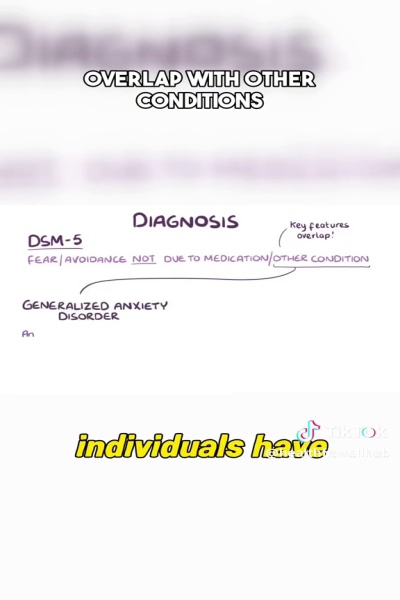 DIAGNOSIS
OVERLAP WITH OTHER
CONDITIONS
DIAGNOSIS
Key features
overlap!
DSM-5
FEAR/AVOIDANCE NOT DUE TO MEDICATION/OTHER CONDITION
GENERALIZED ANXIETY
DISORDER
An
individuals have
TikTok